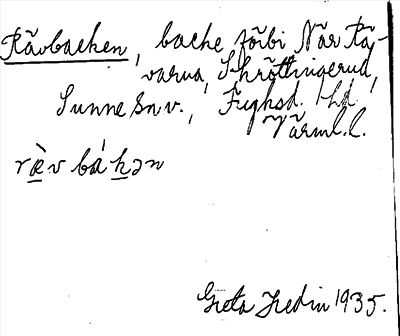 Rävbacken, backe förbi När Rä-
varna, Skröttingerud,
Sunne sn v., Fryksd. hd.,
Värml. l.
ræ̀v bákən
Greta Hedin 1935.